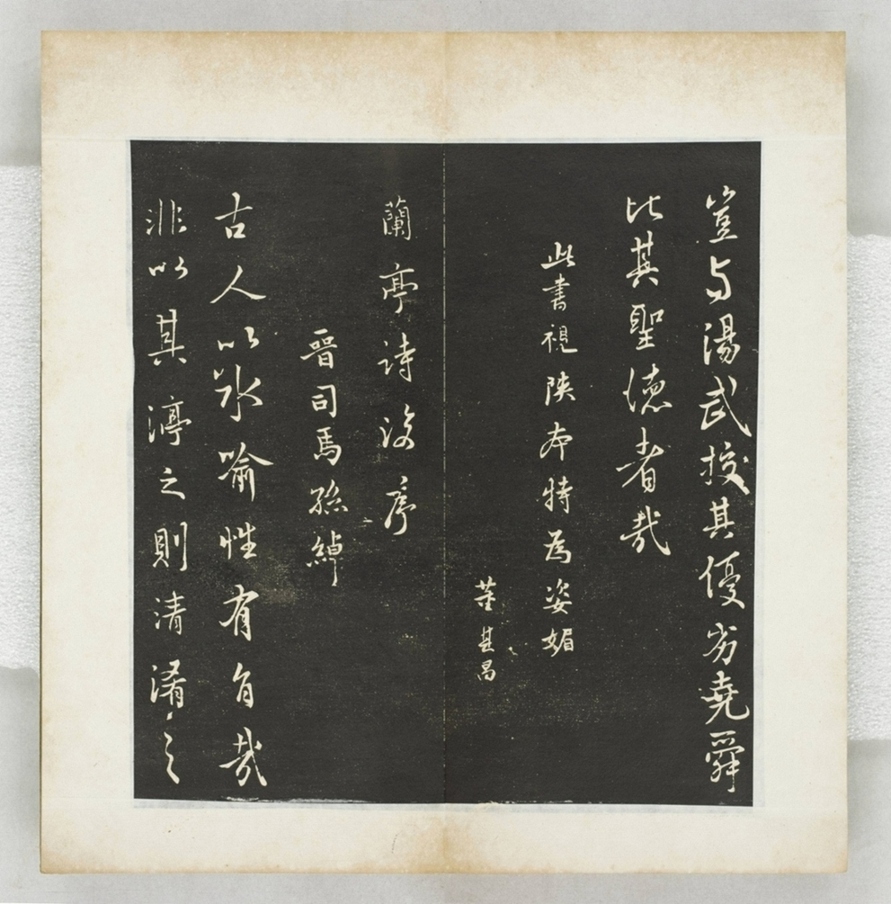 豈与湯武挍其優劣堯舜
比其聖德者哉
此書視陝本特為姿媚
董其昌
蘭亭詩後序
晉司馬孫綽
古人以水喻性有旨哉
非以其渟之則清淆之